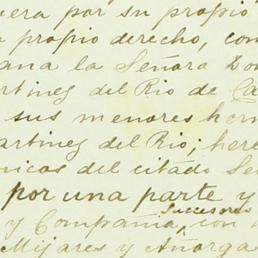 uera por su propio
propio derecho, con
ana la Señora Do
artinez del Rio de Ca
sus menores her
artinez del Rio; here
nicos del citado Se
por una parte y
Sucesores
y Compañia, con
Mijares y Añorga